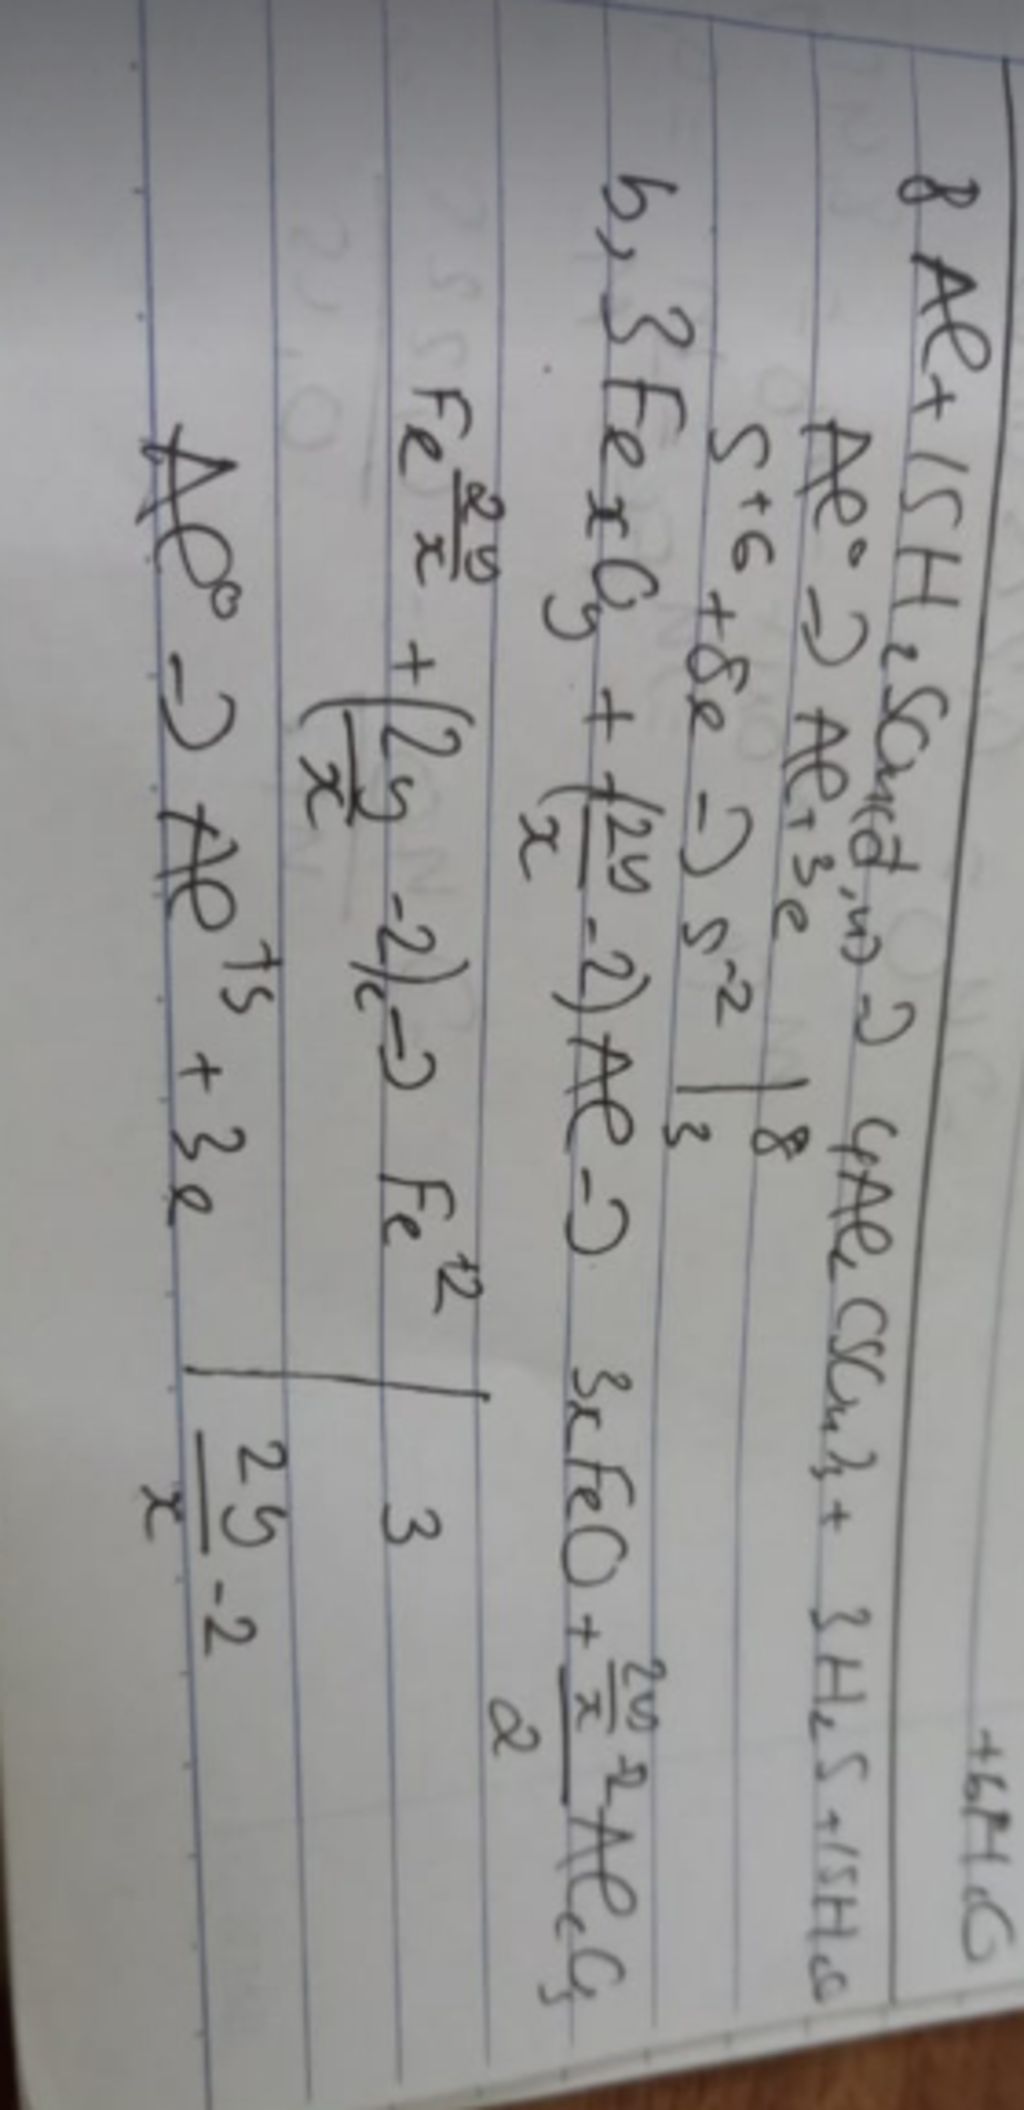 +6H₂O
8Al + 15H₂SO₄(đ,n) → 4Al₂(SO₄)₃ + 3H₂S + 15H₂O
Al⁰ → Al + 3e | 8
S⁺⁶ + 8e → S⁻² | 3
b, 3FexOy + (2y/x - 2)Al → 3xFeO + (2y/x - 2)/2 Al₂O₃
Fe^(2y/x) + (2y/x - 2)e → Fe⁺² | 3
Al⁰ → Al⁺³ + 3e | 2y/x - 2